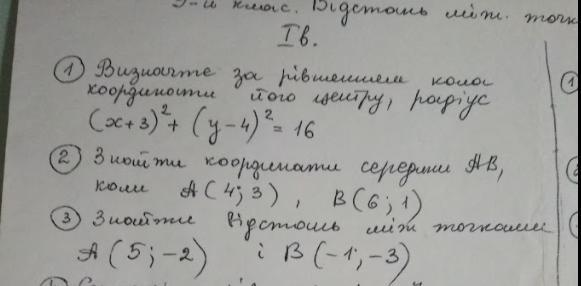 9-й клас. Відстань між точк
І в.
① Визначте за рівнянням кола
координати його центру, радіус
(x+3)² + (y-4)² = 16
② Знайти координати середини AB,
коли A(4; 3), B(6; 1)
③ Знайти відстань між точками
A(5; -2) і B(-1; -3)